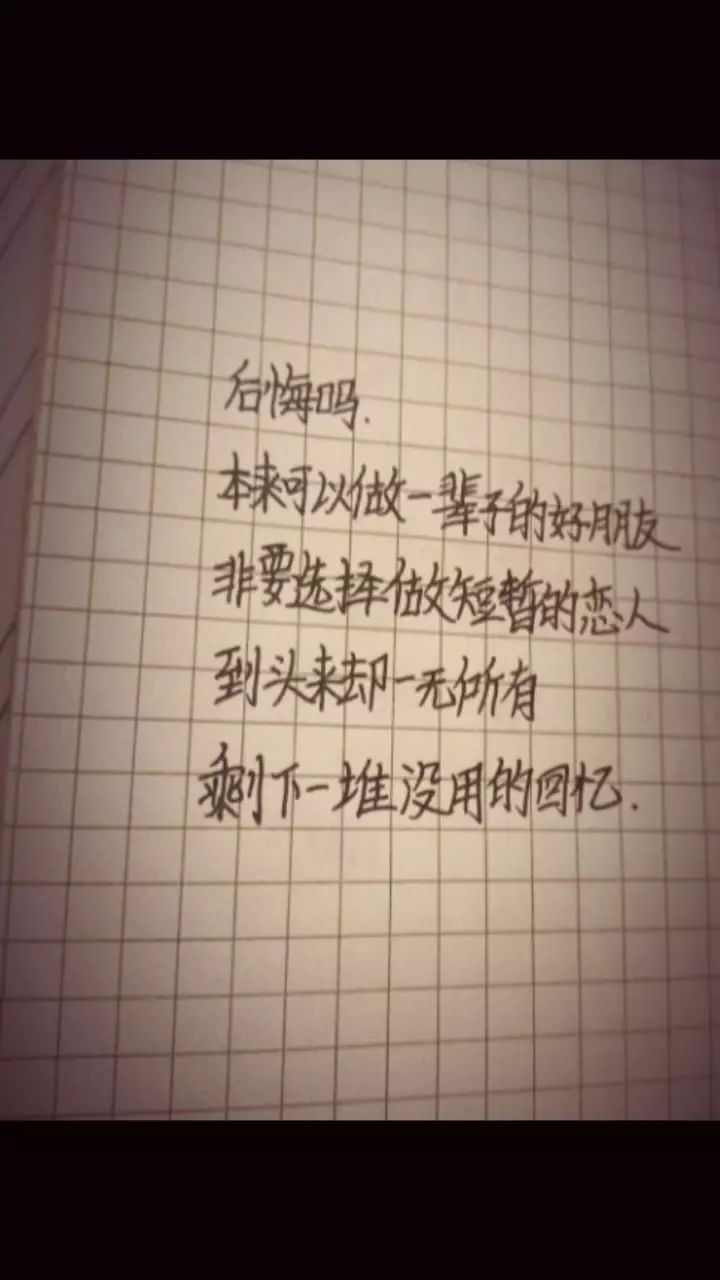 后悔吗.
本来可以做一辈子的好朋友
非要选择做短暂的恋人
到头来却一无所有
剩下一堆没用的回忆.